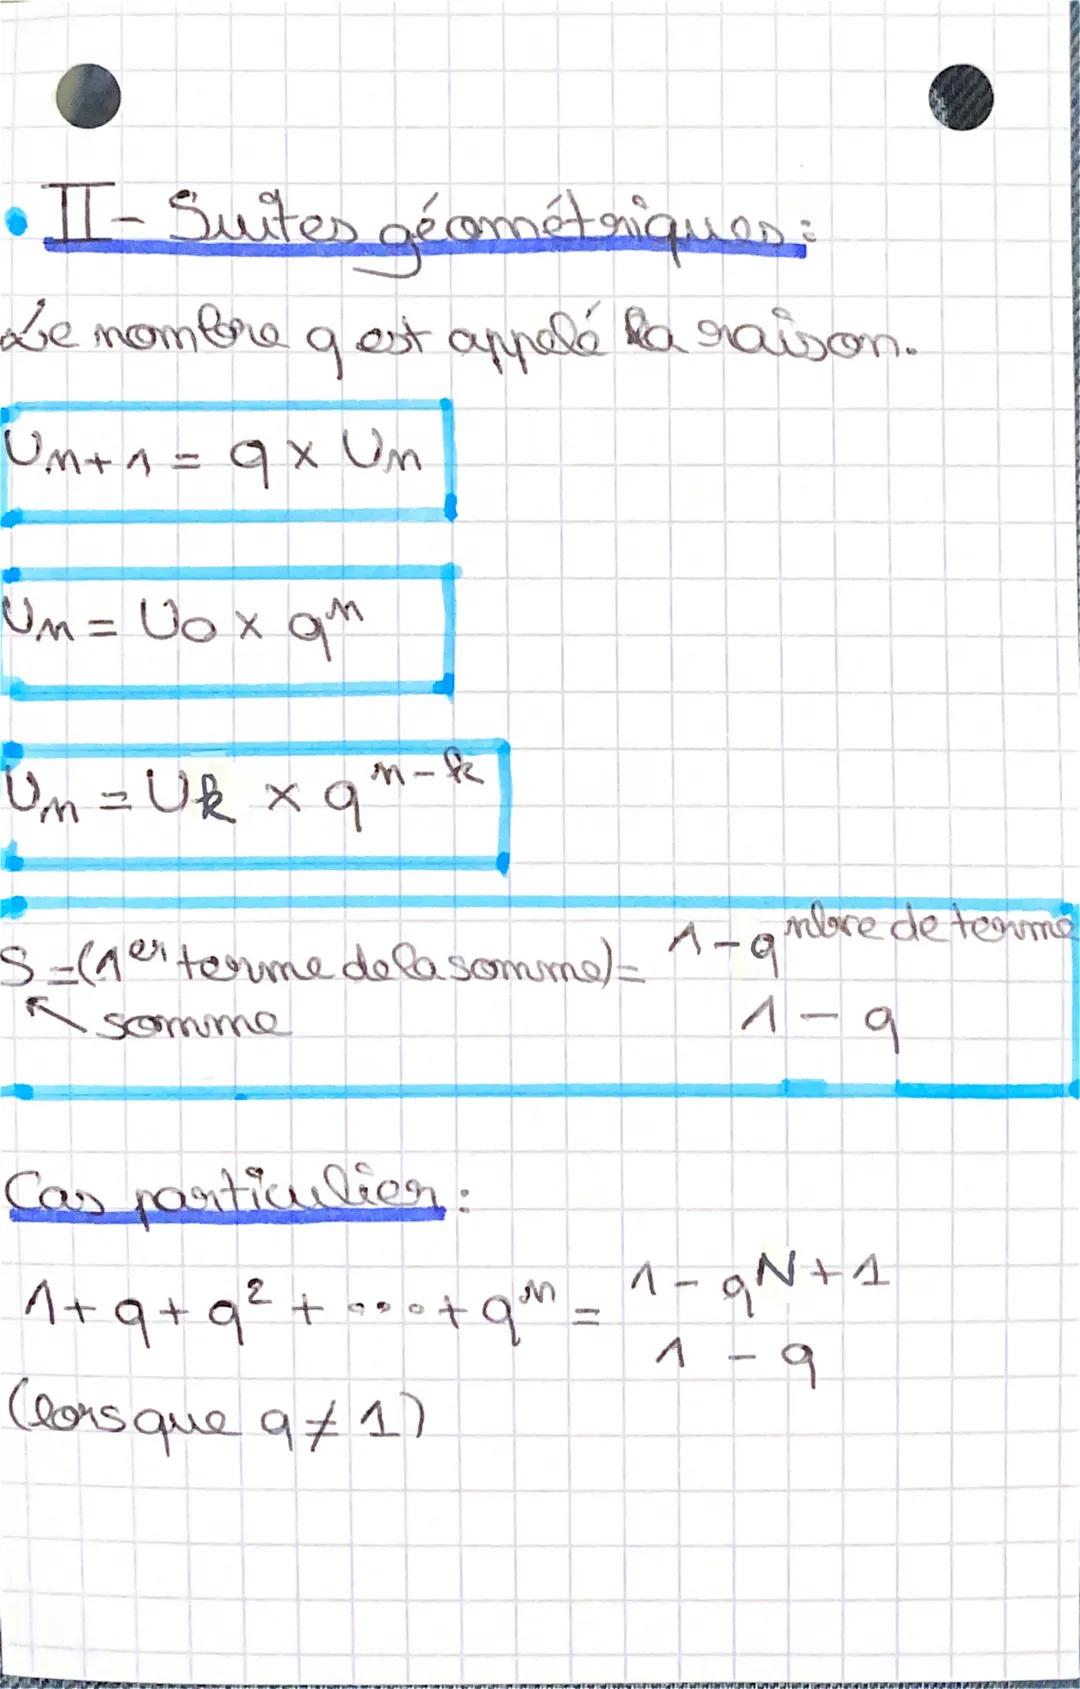 II - Suites géométriques :
Le nombre q est appelé la raison.
Un+1 = q × Un
Un = U0 × qⁿ
Un = Uk × qⁿ⁻ᵏ
S = (1er terme de la somme) = 1 - q^nbre de terme
↖ somme 1 - q
Cas particulier :
1 + q + q² + .... + qⁿ = 1 - q^N+1
1 - q
(lorsque q ≠ 1)